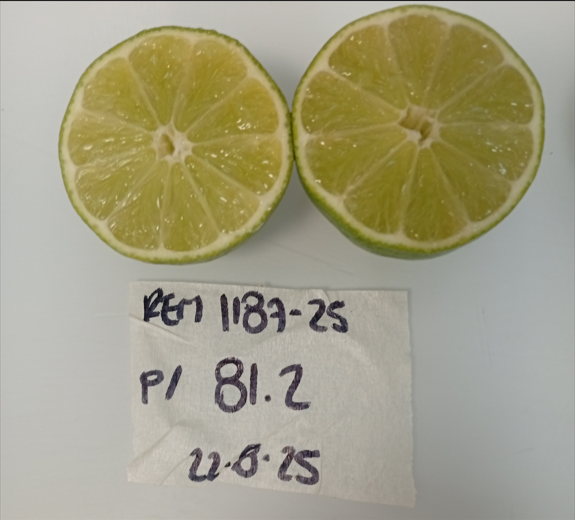 REM 1187-25
P/ 81.2
22.8.25